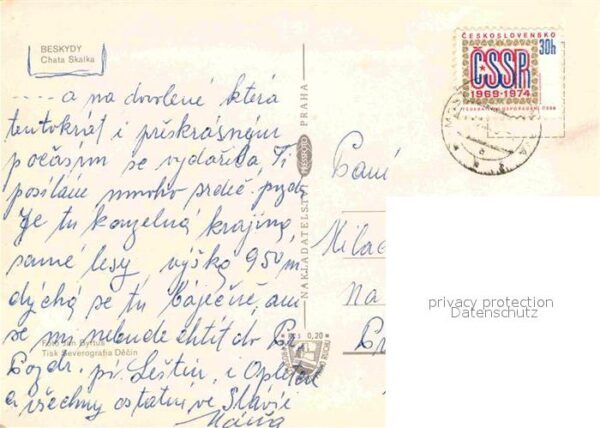 BESKYDY
Chata Skalka
.... a na dovolené která
tentokrát i překrásným
počasím se vydařila Ti
posíláme mnoho srdeč. pozdr.
Je tu kouzelná krajina
samé lesy výška 950 m
dýchá se tu báječně, ani
se mi nebude chtít do Pr.
Foto Jan Byrtus
Tisk Severografia Děčín
Pozdr. pí. Leštin. i Opletal
a všechny ostatní ve Slavii
Máňa
NAKLADATELSTVÍ PRESSFOTO PRAHA
0,20
ČESKOSLOVENSKO
30h
ČSSR
1969-1974
Paní
Milad
Na
Pr
privacy protection
Datenschutz